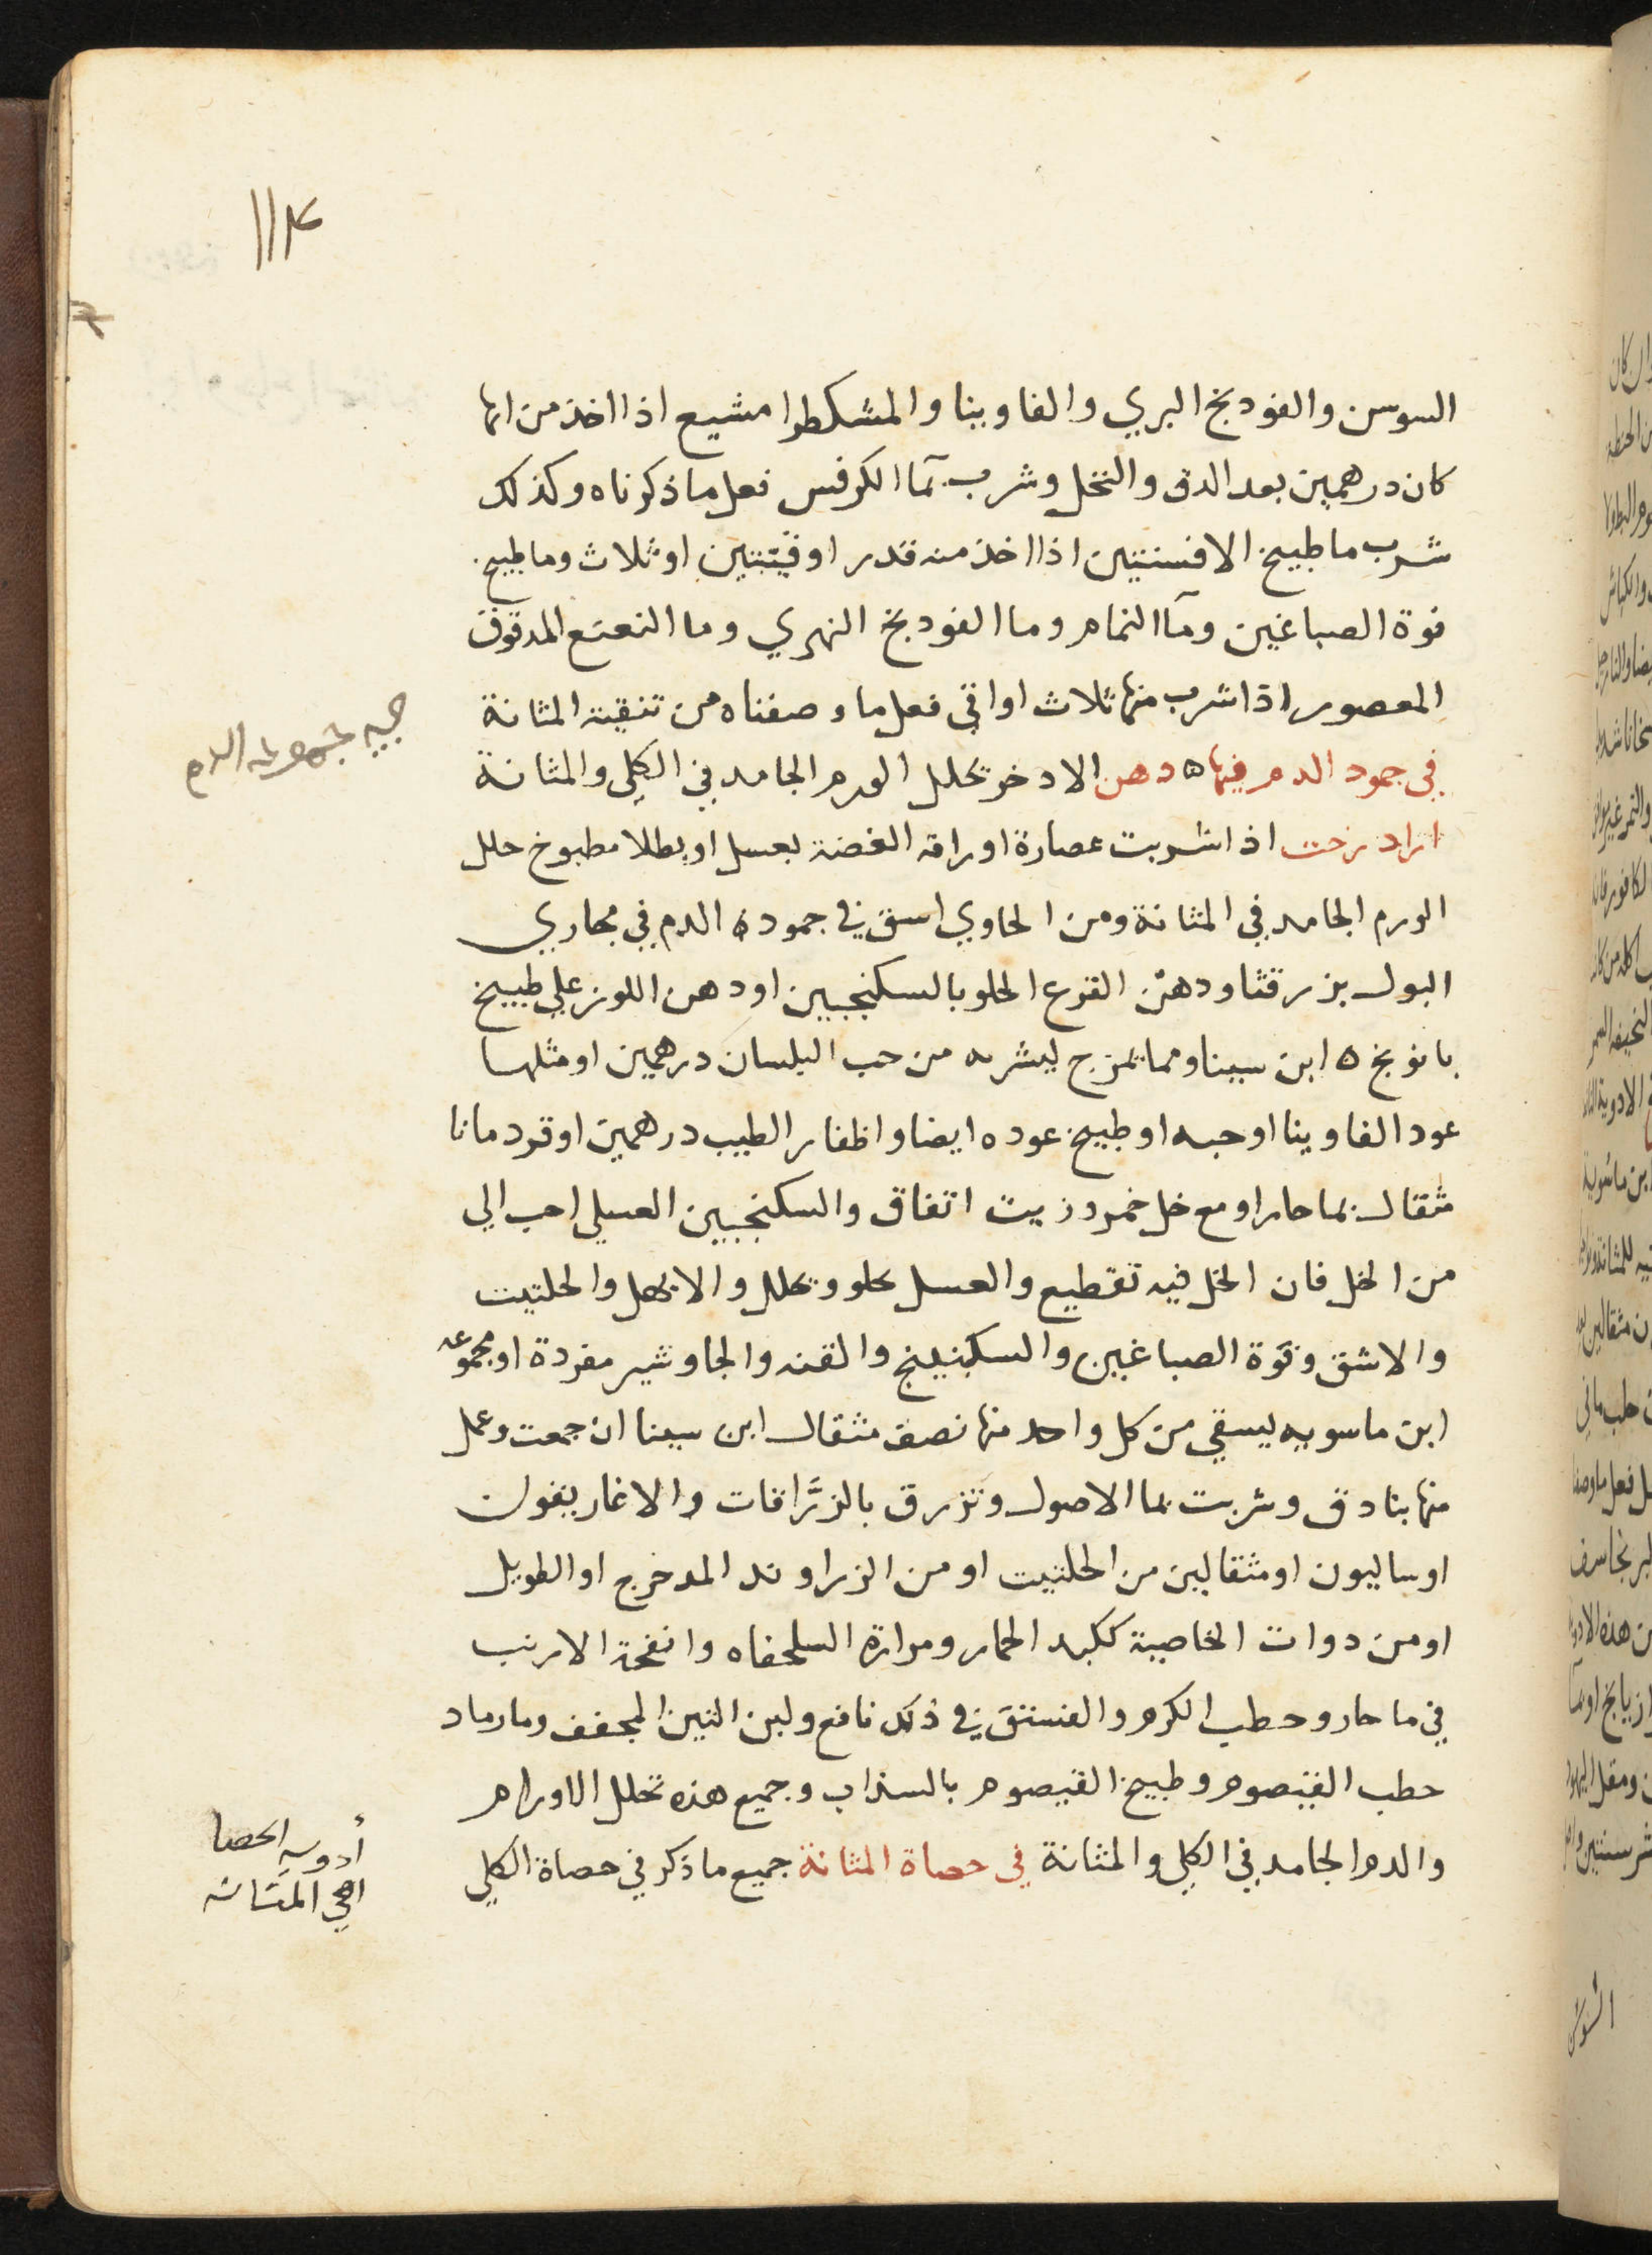 ١١٤
السوسن والفودنج البري والفاوينا والمشكطرا مشيع اذا اخذ من ايها
كان درهمين بعد الدق والنخل وشرب بمآ الكرفس فعل ما ذكرناه وكذلك
شرب ما طبيخ الافسنتين اذا اخذ منه قدر اوقيتين او ثلاث وما طبيخ
فوة الصباغين ومآ النمام وما الفودنج النهري وما النعنع المدقوق
المعصور اذا شرب منها ثلاث اواقي فعل ما وصفناه من تنقية المثانة
في جمود الدم فيها ه دهن الادخر يحلل الورم الجامد في الكلي والمثانة
ازاد رخت اذا شربت عصارة اوراقه الغضة بعسل او بطلا مطبوخ حلل
الورم الجامد في المثانة ومن الحاوي اسق في جمودة الدم في مجاري
البول بزر قثا ودهن القرع الحلو بالسكنجبين او دهن اللوز علي طبيخ
بانونج ه ابن سينا ومما يمزج ليشربه من حب البلسان درهمين او مثلها
عود الفاوينا او حبه او طبيخ عوده ايضا واظفار الطيب درهمين او قردمانا
مثقال بما حار او مع خل خمر وزيت اتفاق والسكنجبين العسلي احب الي
من الخل فان الخل فيه تقطيع والعسل يحلو ويحلل والابهل والحلتيت
والاشق وفوة الصباغين والسكبينج والقنه والجاوشير مفردة او مجموعه
ابن ماسويه ليسقي من كل واحد منها نصف مثقال ابن سينا ان جمعت وعمل
منها بنادق وشربت بما الاصول وتزرق بالزرَّاقات والاغاريقون
اوساليون او مثقالين من الحلتيت او من الزراوند المدحرج او الطويل
او من دوات الخاصية ككبد الحمار ومرارة السلحفاه وانفحة الارنب
في ما حار وحطب الكرم والفستق في ذلك نافع ولبن التين المجفف وما رماد
حطب القيصوم وطبيخ القيصوم بالسذاب وجميع هذه تحلل الاورام
والدم الجامد في الكلي والمثانة في حصاة المثانة جميع ما ذكر في حصاة الكلي
الدم
أدوية الحصا
في المثانه